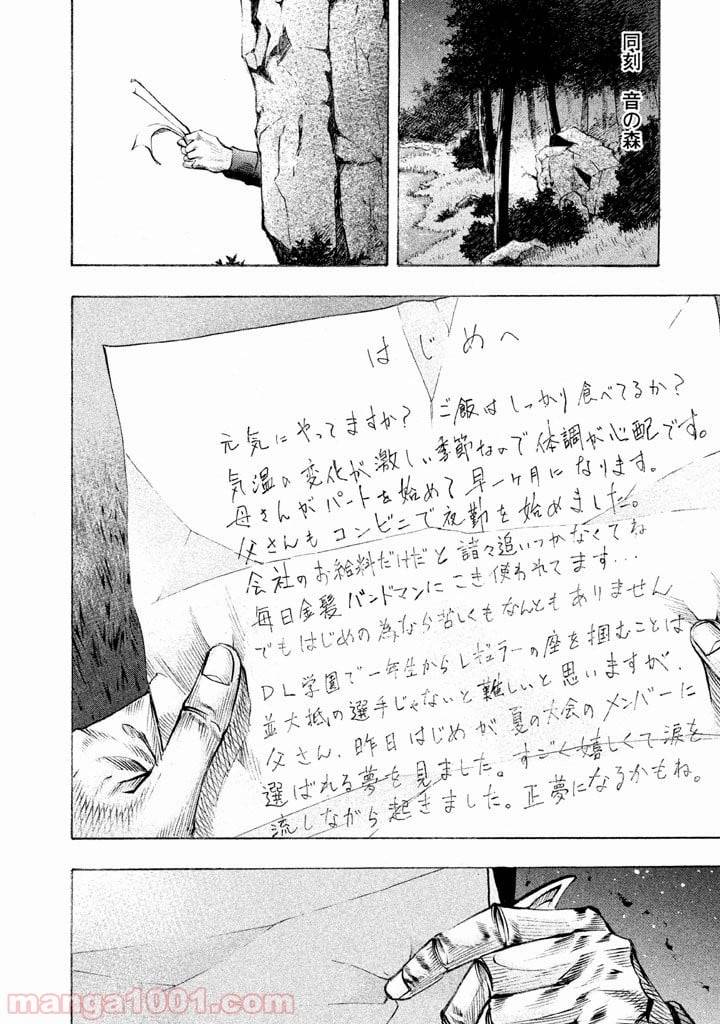 同刻 音の森
はじめへ
元気にやってますか? ご飯はしっかり食べてるか?
気温の変化が激しい季節なので体調が心配です。
母さんがパートを始めて早一ヶ月になります。
父さんもコンビニで夜勤を始めました。
会社のお給料だけだと諸々追いつかなくてね
毎日金髪バンドマンにこき使われてます…
でもはじめの為なら苦しくもなんともありません
DL学園で一年生からレギュラーの座を掴むことは
並大抵の選手じゃないと難しいと思いますが、
父さん、昨日はじめが夏の大会のメンバーに
選ばれる夢を見ました。すごく嬉しくて涙を
流しながら起きました。正夢になるかもね。
manga1001.com